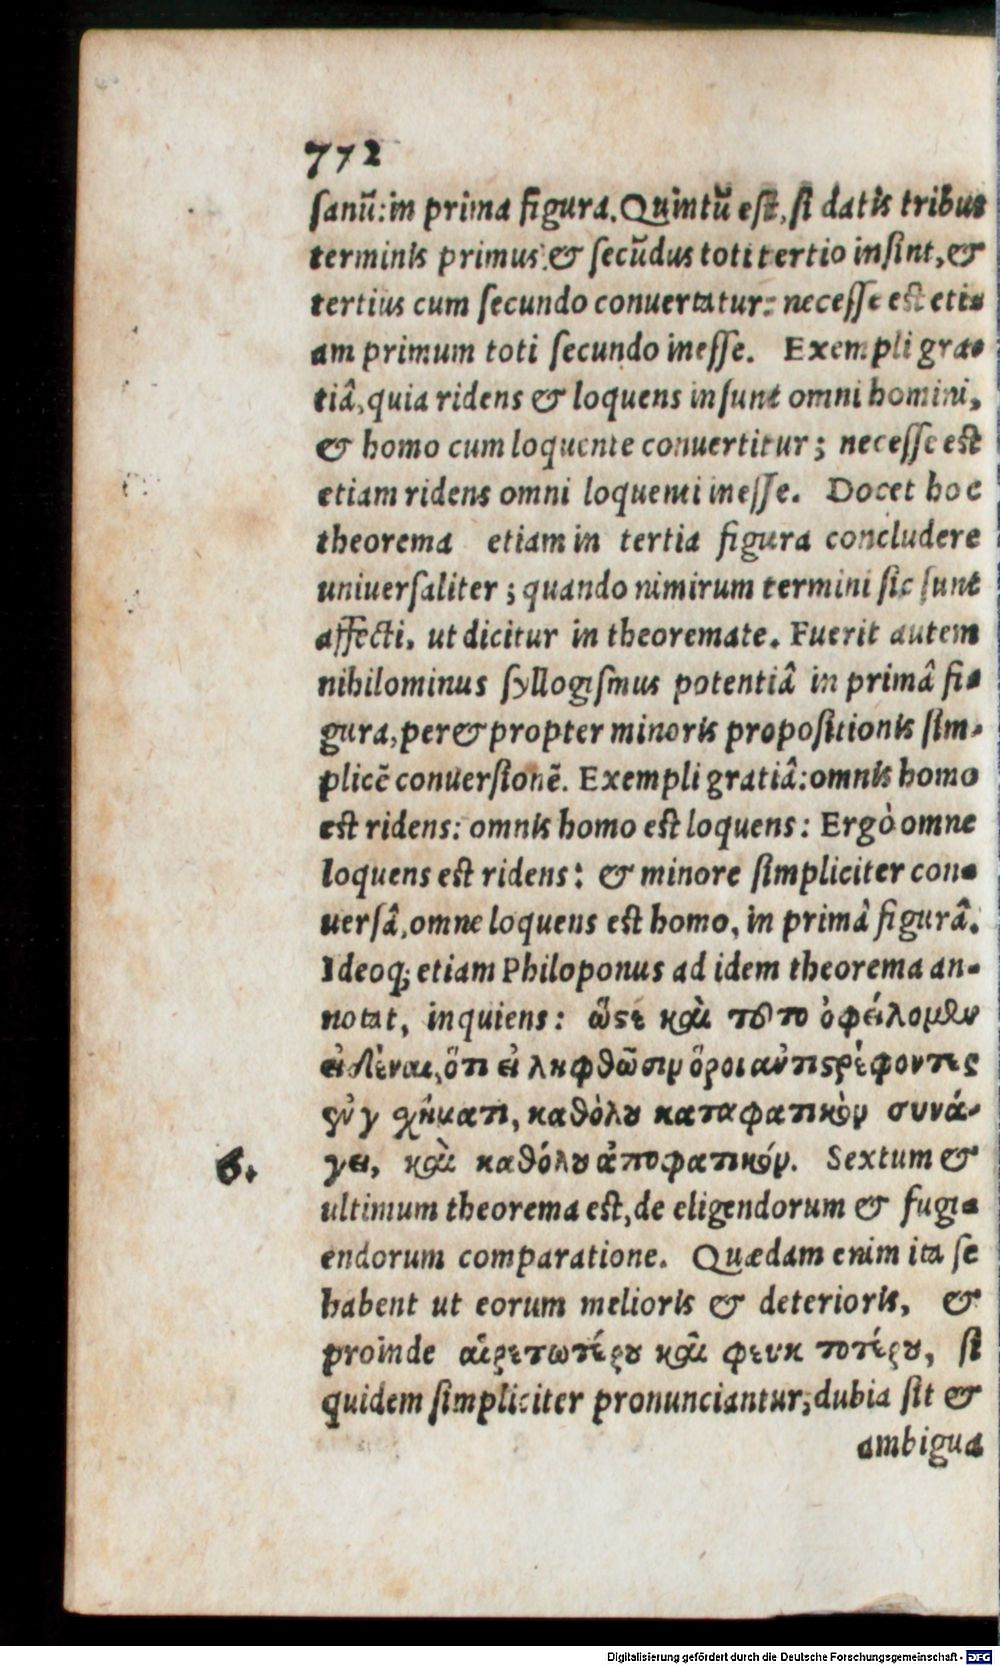 772
sanũ: in prima figura. Quintũ est, si datis tribus
terminis primus & secũdus toti tertio insint, &
tertius cum secundo conuertatur: necesse est eti-
am primum toti secundo inesse. Exempli gra-
tiâ, quia ridens & loquens insunt omni homini,
& homo cum loquente conuertitur; necesse est
etiam ridens omni loquenti inesse. Docet hoc
theorema etiam in tertia figura concludere
uniuersaliter; quando nimirum termini sic sunt
affecti, ut dicitur in theoremate. Fuerit autem
nihilominus syllogismus potentiâ in primâ fi-
gura, per & propter minoris propositionis sim-
plicẽ conuersionẽ. Exempli gratiâ: omnis homo
est ridens: omnis homo est loquens: Ergò omne
loquens est ridens: & minore simpliciter con-
uersâ, omne loquens est homo, in primâ figurâ.
Ideoq; etiam Philoponus ad idem theorema an-
notat, inquiens: ὥστε καὶ τοῦτο ὀφείλομεν
εἰδέναι, ὅτι εἰ ληφθῶσιν ὅροι ἀντιστρέφοντες
ἐν γ χήματι, καθόλου καταφατικὸν συνά-
6. γει, καὶ καθόλου ἀποφατικόν. Sextum &
ultimum theorema est, de eligendorum & fugi-
endorum comparatione. Quædam enim ita se
habent ut eorum melioris & deterioris, &
proinde αἱρετωτέρου καὶ φευκτοτέρου, si
quidem simpliciter pronunciantur, dubia sit &
ambigua
Digitalisierung gefördert durch die Deutsche Forschungsgemeinschaft - DFG